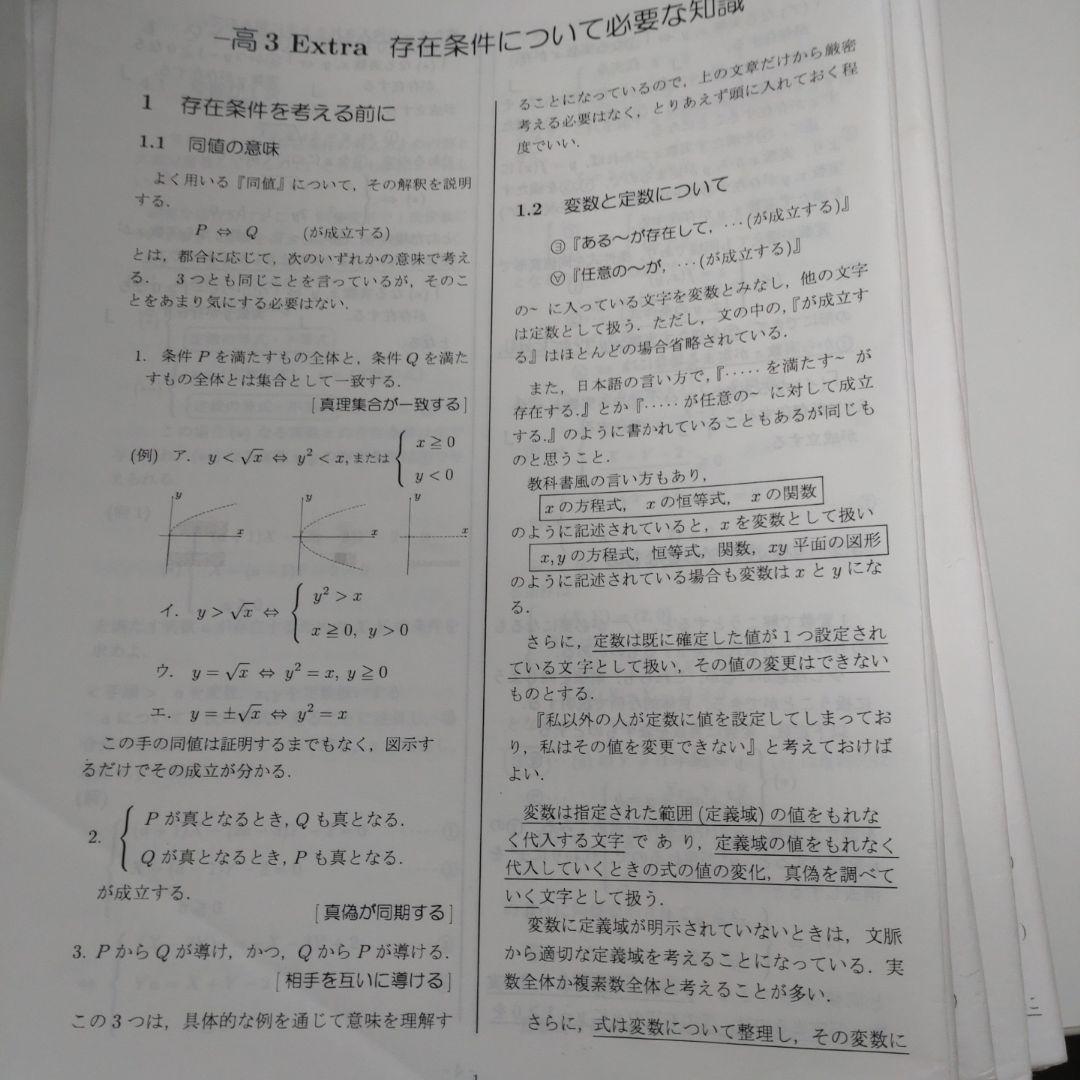 高3 Extra 存在条件について必要な知識
1 存在条件を考える前に
1.1 同値の意味
よく用いる『同値』について，その解釈を説明
する．
P ⇔ Q (が成立する)
とは，都合に応じて，次のいずれかの意味で考え
る． 3つとも同じことを言っているが，そのこ
とをあまり気にする必要はない．
1. 条件 P を満たすもの全体と，条件 Q を満た
すもの全体とは集合として一致する．
[真理集合が一致する]
(例) ア． y < √x ⇔ y² < x, または { x ≧ 0
y < 0
y y y
x x x
イ． y > √x ⇔ { y² > x
x ≧ 0, y > 0
ウ． y = √x ⇔ y² = x, y ≧ 0
エ． y = ±√x ⇔ y² = x
この手の同値は証明するまでもなく，図示す
るだけでその成立が分かる．
2. { P が真となるとき, Q も真となる．
Q が真となるとき, P も真となる．
が成立する．
[真偽が同期する]
3. P から Q が導け，かつ，Q から P が導ける．
[相手を互いに導ける]
この3つは，具体的な例を通じて意味を理解す
ることになっているので，上の文章だけから厳密
考える必要はなく，とりあえず頭に入れておく程
度でいい．
1.2 変数と定数について
∃『ある〜が存在して，···(が成立する)』
∀『任意の〜が，···(が成立する)』
の~ に入っている文字を変数とみなし，他の文字
は定数として扱う．ただし，文の中の，『が成立す
る』はほとんどの場合省略されている．
また，日本語の言い方で，『·····を満たす~ が
存在する．』とか『·····が任意の~ に対して成立
する．』のように書かれていることもあるが同じも
のと思うこと．
教科書風の言い方もあり，
x の方程式， x の恒等式， x の関数
のように記述されていると，x を変数として扱い
x, y の方程式，恒等式，関数，xy 平面の図形
のように記述されている場合も変数は x と y にな
る．
さらに，定数は既に確定した値が1つ設定され
ている文字として扱い，その値の変更はできない
ものとする．
『私以外の人が定数に値を設定してしまってお
り，私はその値を変更できない』と考えておけば
よい．
変数は指定された範囲 (定義域) の値をもれな
く代入する文字であり，定義域の値をもれなく
代入していくときの式の値の変化，真偽を調べて
いく文字として扱う．
変数に定義域が明示されていないときは，文脈
から適切な定義域を考えることになっている．実
数全体か複素数全体と考えることが多い．
さらに，式は変数について整理し，その変数に